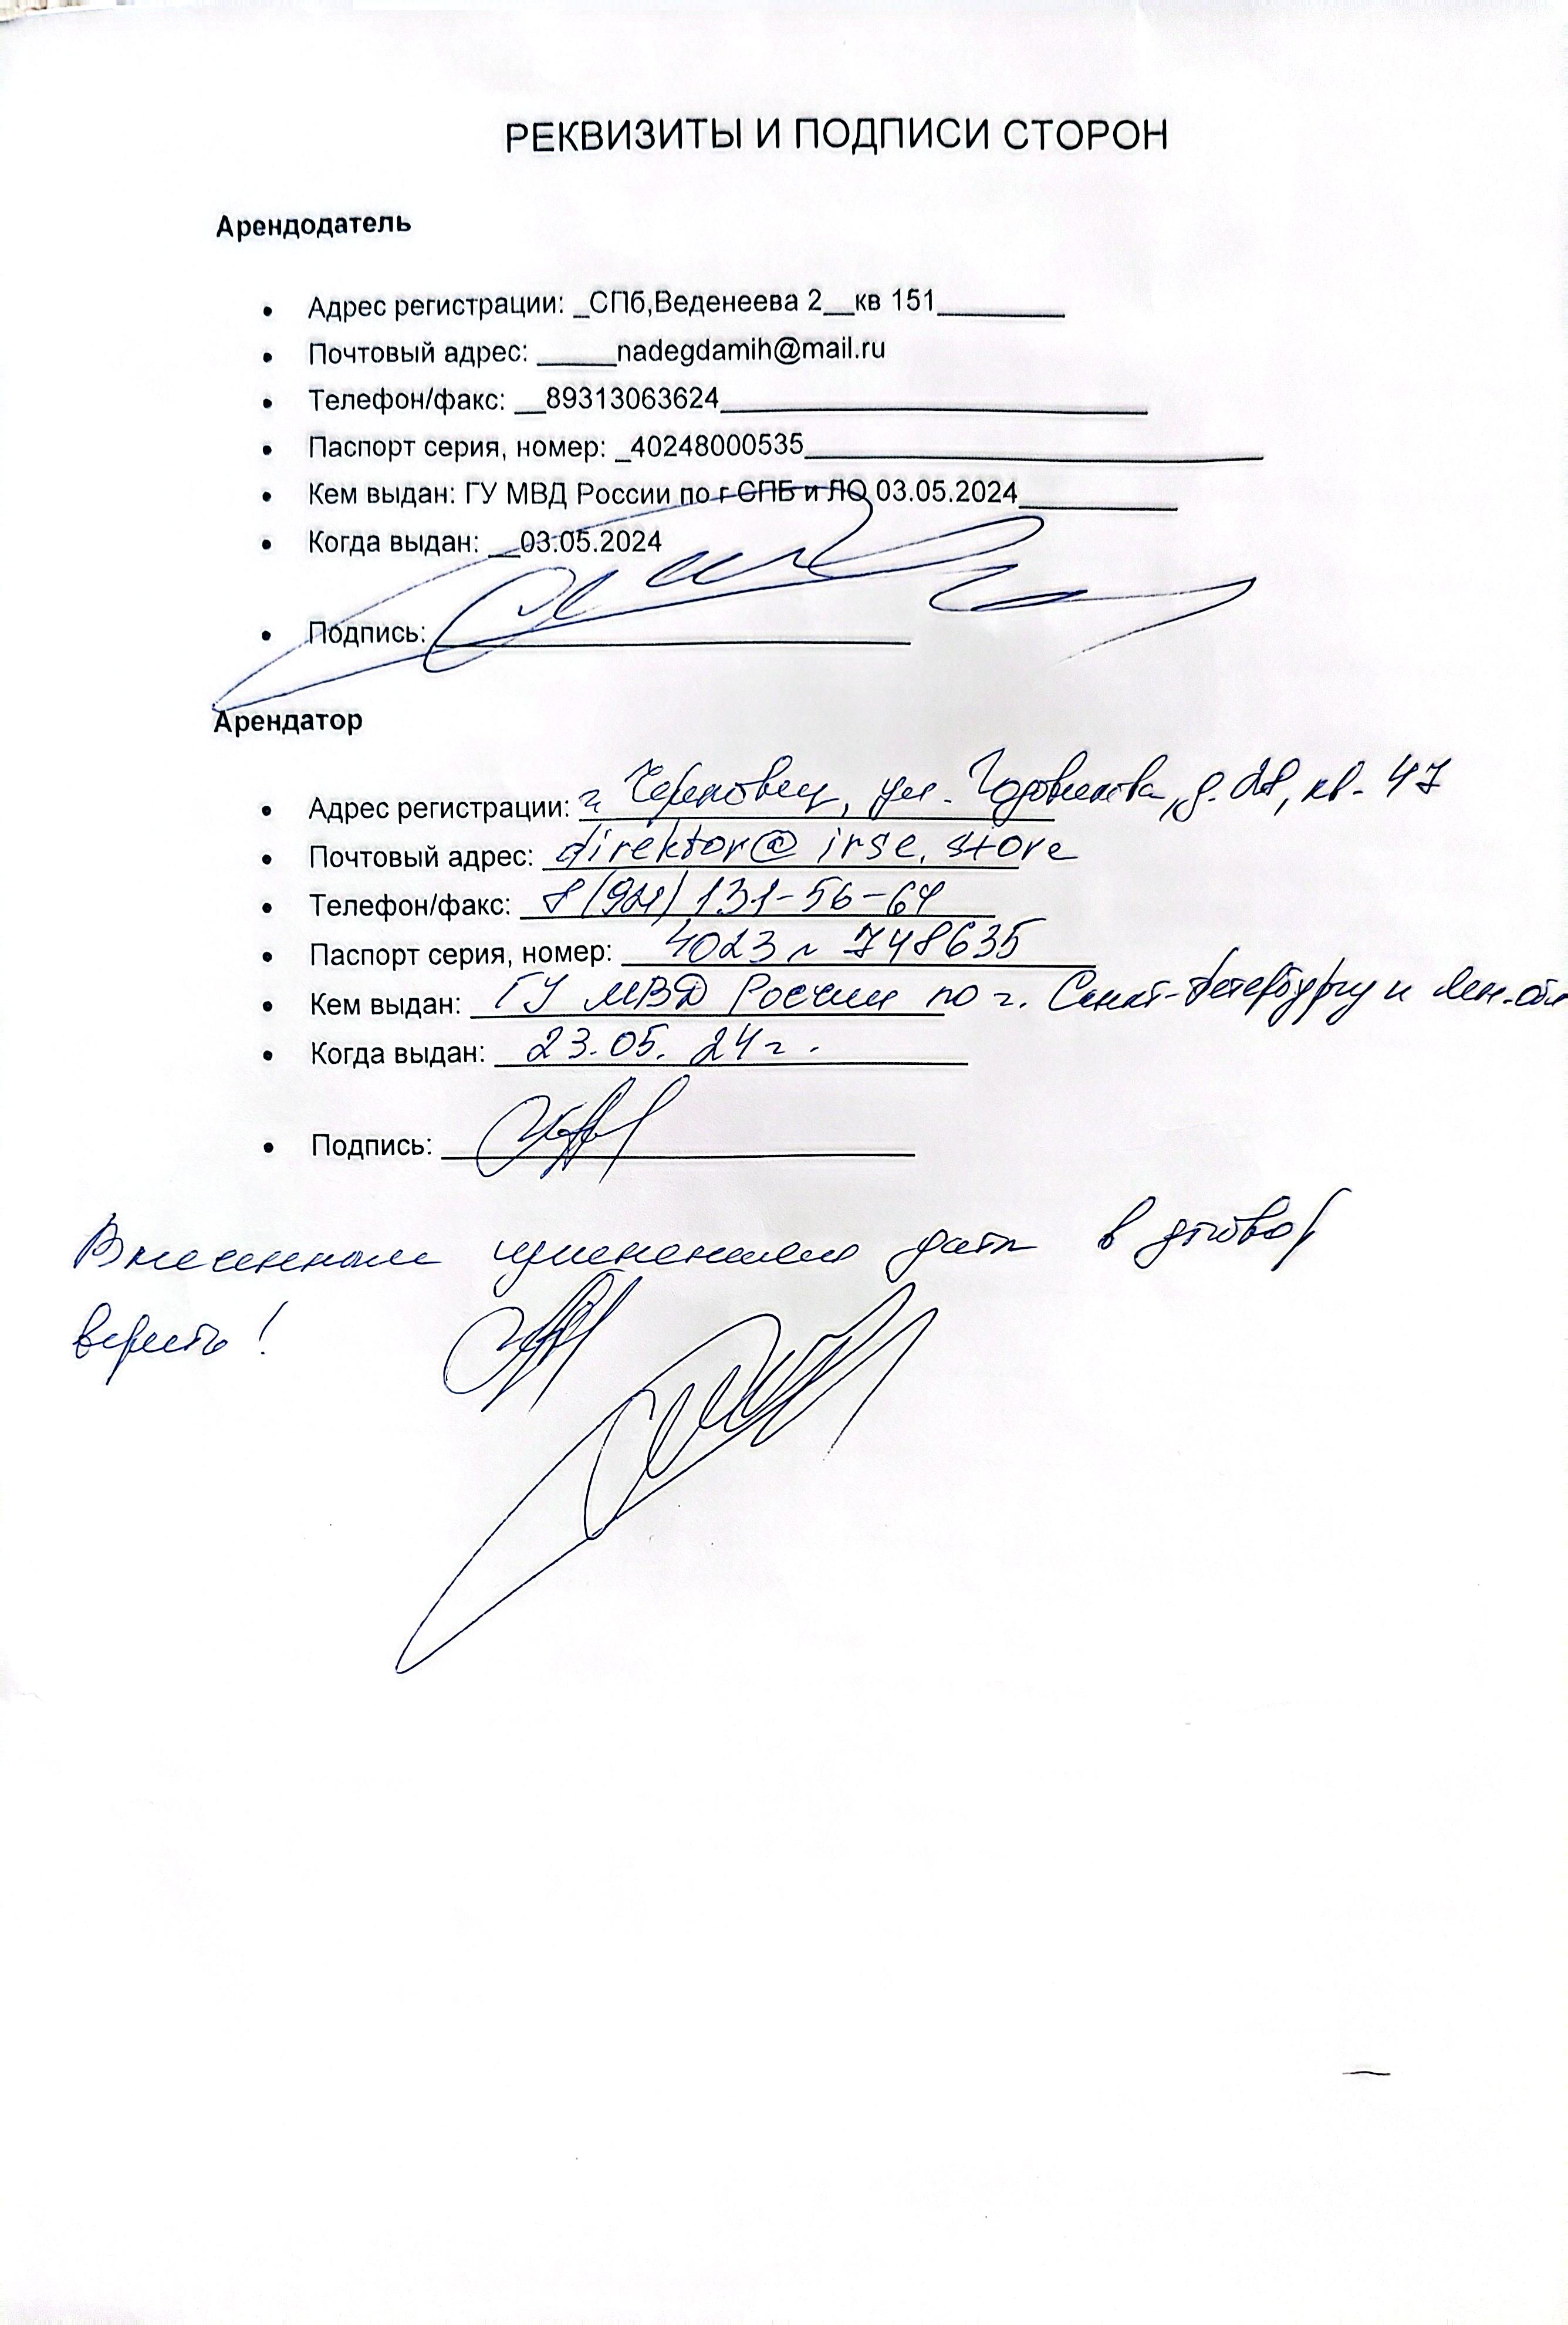 РЕКВИЗИТЫ И ПОДПИСИ СТОРОН
Арендодатель
• Адрес регистрации: _СПб,Веденеева 2__кв 151________
• Почтовый адрес: _____nadegdamih@mail.ru
• Телефон/факс: __89313063624___________________________
• Паспорт серия, номер: _40248000535_____________________________
• Кем выдан: ГУ МВД России по г СПБ и ЛО 03.05.2024__________
• Когда выдан: __03.05.2024
• Подпись: ______________________________
Арендатор
• Адрес регистрации: г. Череповец, ул. Годовикова, д. 28, кв. 47
• Почтовый адрес: direktor@irse.store
• Телефон/факс: 8(921) 131-56-64
• Паспорт серия, номер: 4023 № 748635
• Кем выдан: ГУ МВД России по г. Санкт-Петербургу и Лен. обл
• Когда выдан: 23.05.24г.
• Подпись: ______________________________
Внесенным изменениям даты в договор
верить!